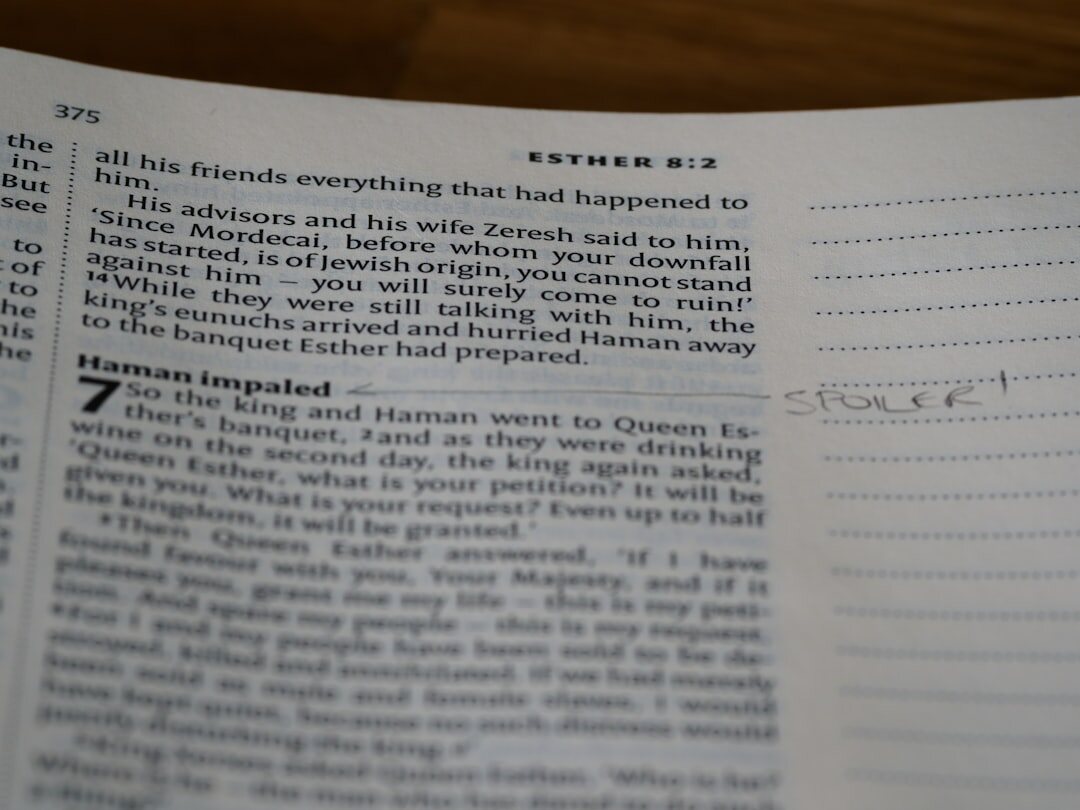 375
ESTHER 8:2
the
in-
But
see
to
of
to
he
his
he
all his friends everything that had happened to
him.
His advisors and his wife Zeresh said to him,
‘Since Mordecai, before whom your downfall
has started, is of Jewish origin, you cannot stand
against him – you will surely come to ruin!’
14 While they were still talking with him, the
king’s eunuchs arrived and hurried Haman away
to the banquet Esther had prepared.
Haman impaled
SPOILER!
7 So the king and Haman went to Queen Es-
ther’s banquet, 2 and as they were drinking
wine on the second day, the king again asked,
‘Queen Esther, what is your petition? It will be
given you. What is your request? Even up to half
the kingdom, it will be granted.’
Then Queen Esther answered, ‘If I have
found favour with you, Your Majesty, and if it
pleases you, grant me my life – this is my peti-
tion. And spare my people – this is my request.
For I and my people have been sold to be de-
stroyed, killed and annihilated. If we had merely
been sold as male and female slaves, I would
have kept quiet, because no such distress would
justify disturbing the king.